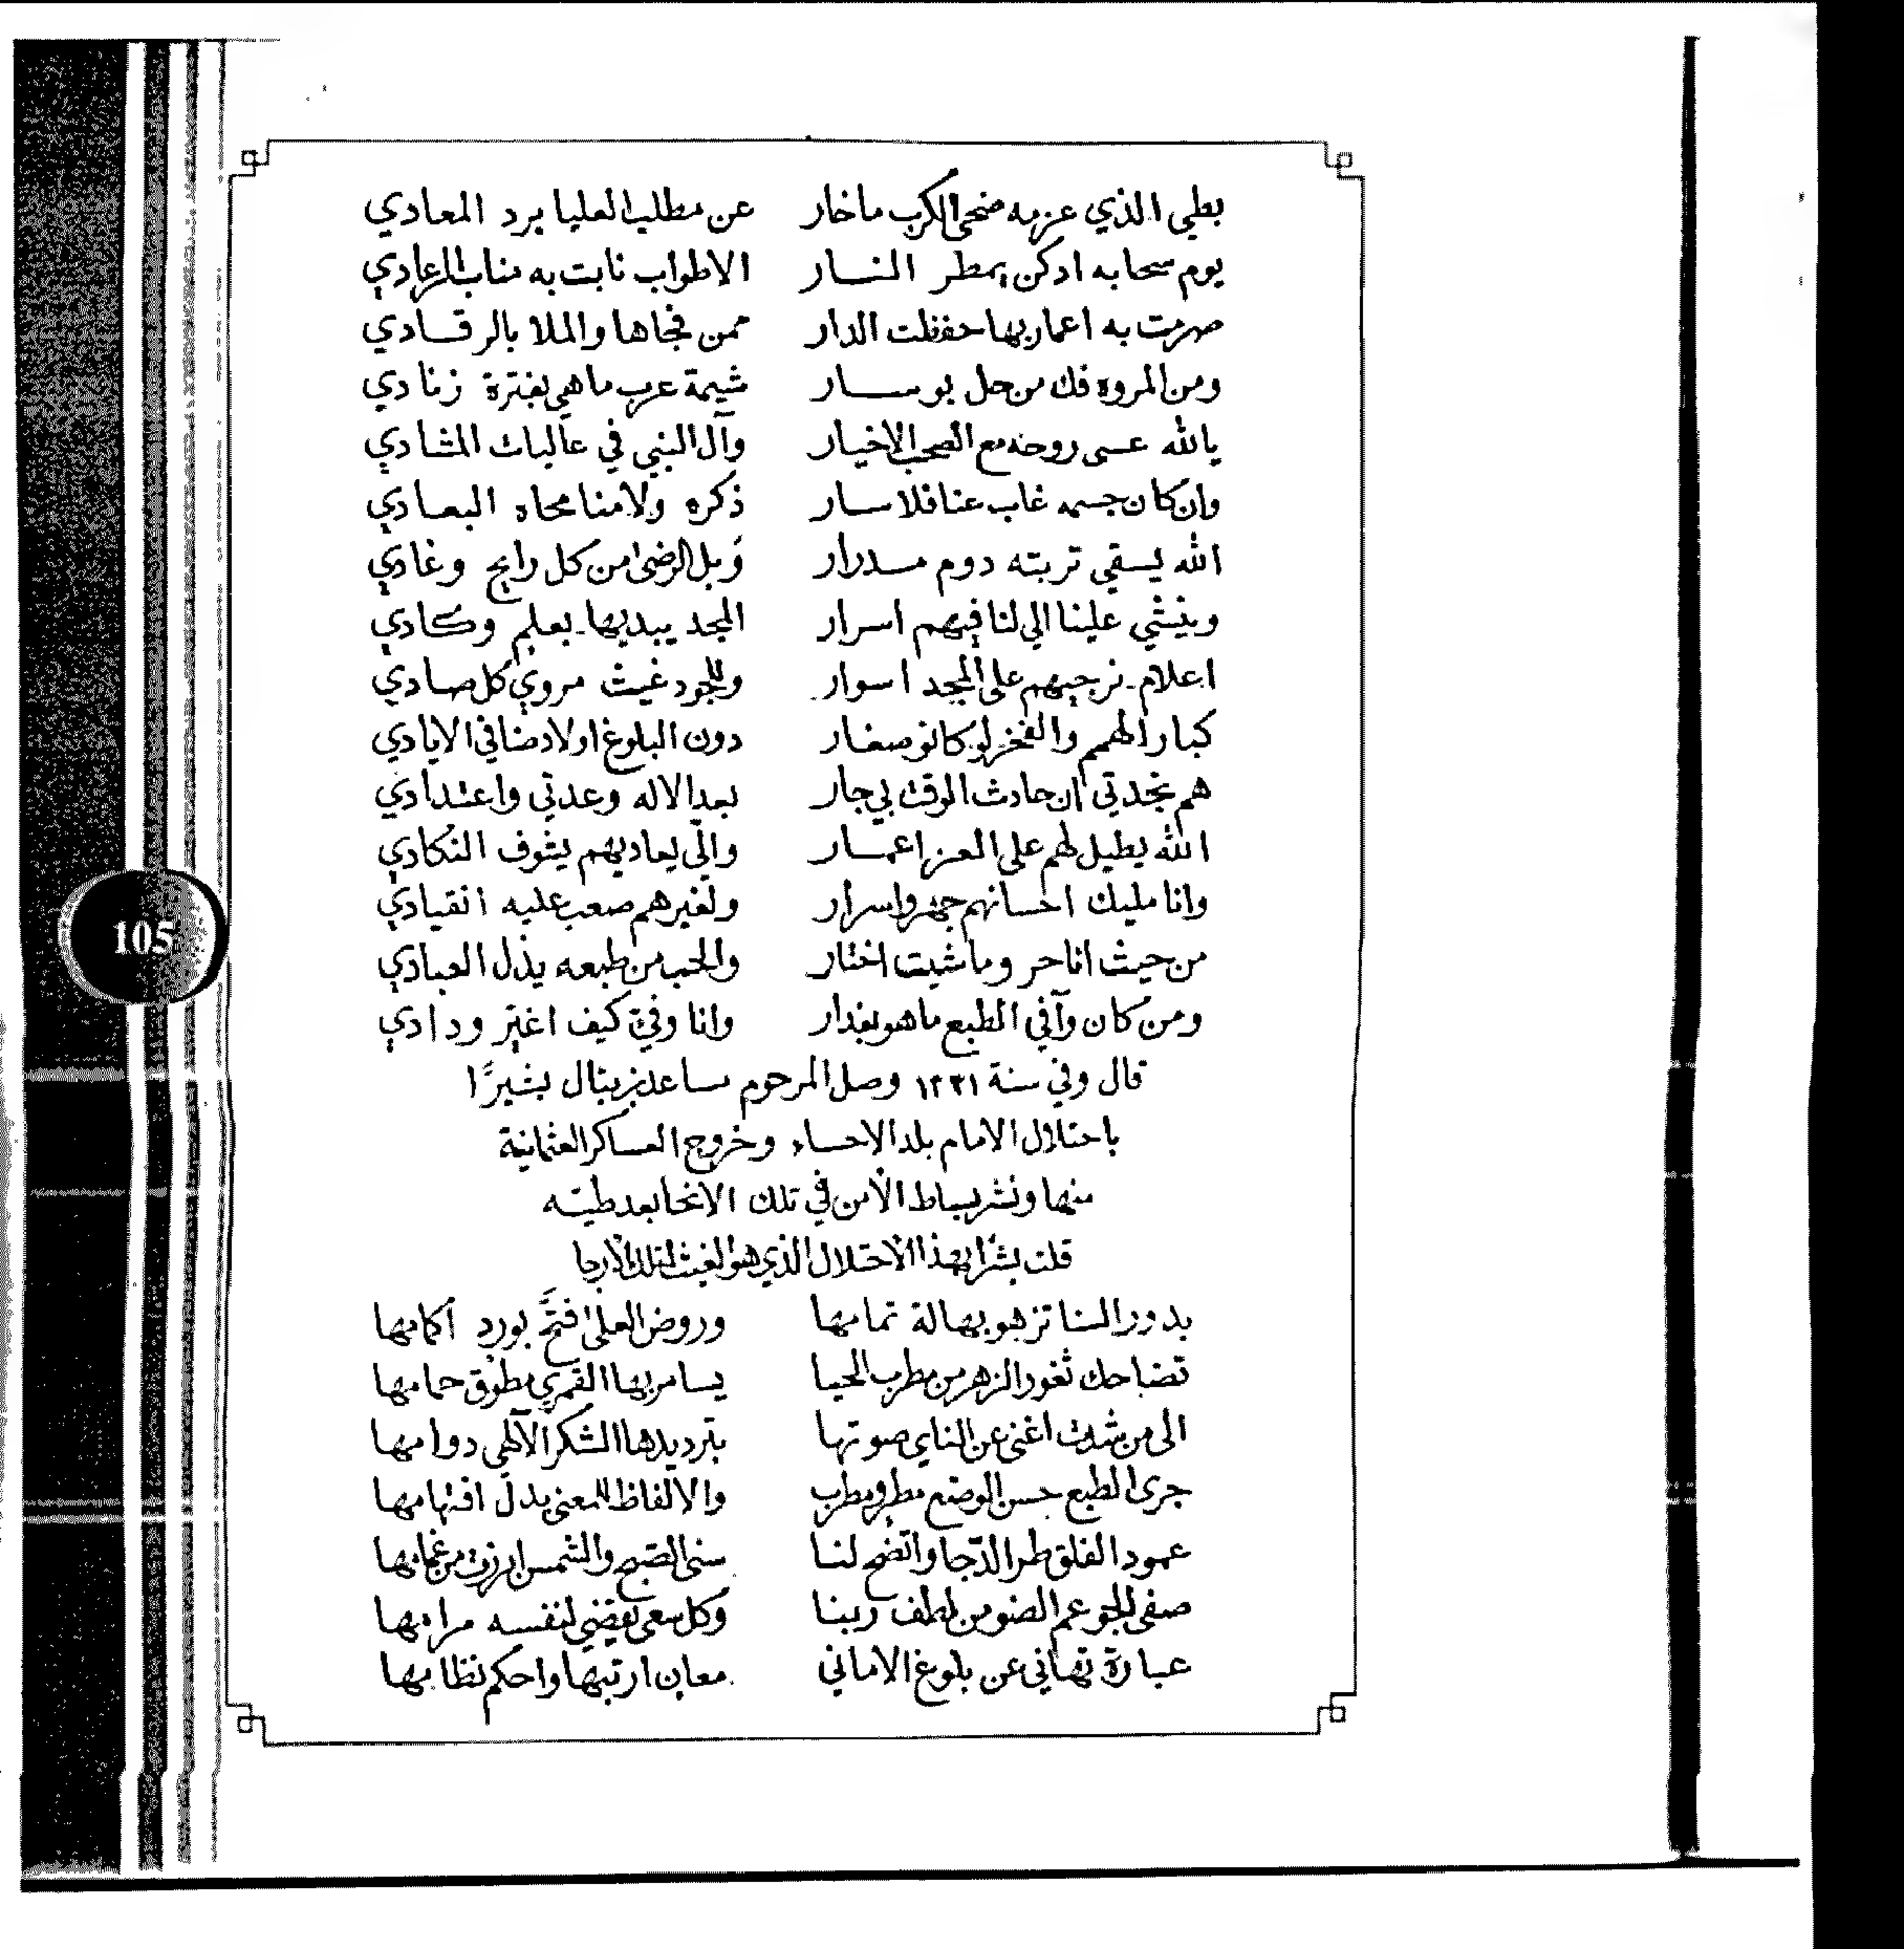 بطي الذي عزمه ضحى الكرب ماخار عن مطلب العليا يرد المعادي
يوم سحابه ادكن يمطر النار الاطواب نابت به مناب الرعادي
صرمت به اعمار بها حفظت الدار ممن فجاها والملا بالرقادي
ومن المروه فك من حل بوسار شيمة عرب ماهي بفترة زنادي
يالله عسى روحه مع الصحب الاخيار وآل النبي في عاليات المشادي
وان كان جسمه غاب عنا فلا سار ذكره ولا منا محاه البعادي
الله يسقي تربته دوم مدرار وبل الرضى من كل رايح وغادي
وينشي علينا الي لنا فيهم اسرار المجد يبديها بعلم وكادي
اعلام نرجيهم على المجد اسوار وللجود غيث مروي كل صادي
كبار الهمم والفخر لو كانو صغار دون البلوغ اولاد ضافي الايادي
هم نجدتي ان حادث الوقت بي جار بعد الاله وعدتي واعتدادي
الله يطيل لهم على العز اعمار والي يعاديهم يشوف النكادي
وانا مليك احسانهم جهر واسرار ولغيرهم صعب عليه انقيادي
من حيث انا حر وما شيت اختار والحب من طبعه يذل العبادي
ومن كان وآفي الطبع ماهو بغدار وانا وفيّ كيف اغيّر ودادي
قال وفي سنة ١٣٣١ وصل المرحوم ساعد بن بتال بشيرًا
باحتلال الامام بلد الاحساء وخروج العساكر العثمانية
منها ونشر بساط الأمن في تلك الانحا بعد طيّه
قلت بشرًا بهذا الاحتلال الذي هو الغيث لتلك الأرجا
بدور السنا تزهو بهالة تمامها وروض العلى فتَّح بورد أكمامها
تضاحك ثغور الزهر من مطرب الحيا يسامر بها القمري مطوق حمامها
الى من شدت اغنى عن الناي صوتها بترديدها الشكر الآلهي دوامها
جرى الطبع حسن الوضع مطر ومطرب والالفاظ للمعنى يدل افتهامها
عمود الفلق طر الدّجا واتضح لنا سنى الصبح والشمس ابرزت من غمامها
صفى الجو عم الضو من لطف ربنا وكل سعى يقضي لنفسه مرامها
عبارة تهاني عن بلوغ الاماني معانٍ ارتبها واحكم نظامها
105